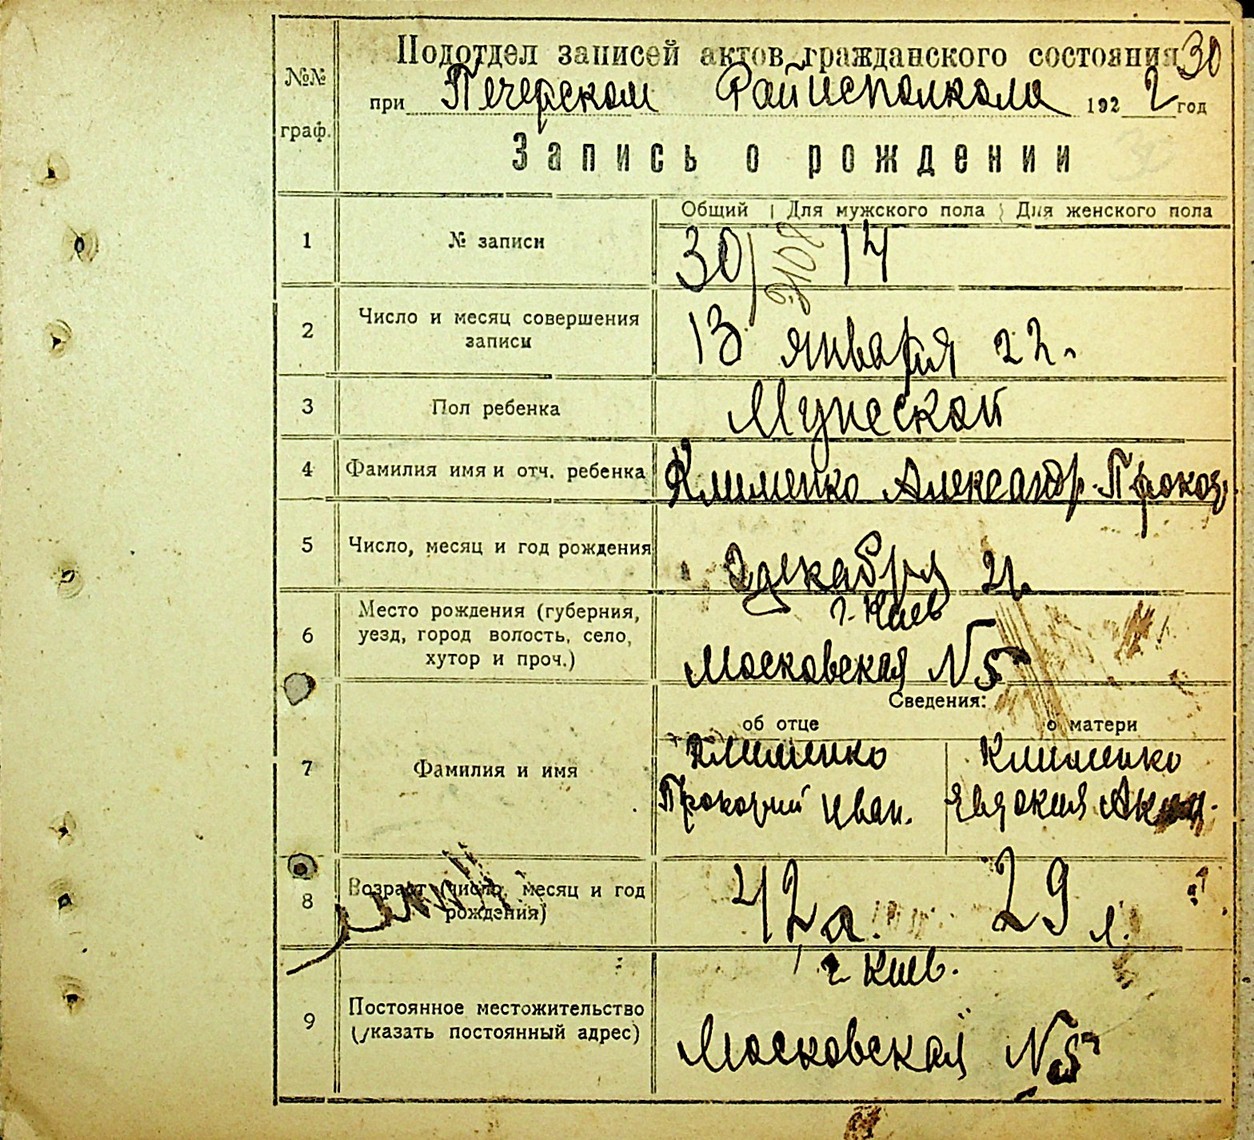 Подотдел записей актов гражданского состояния 30
№№ граф.
при Печерском Райисполкоме 1922 год
Запись о рождении
Общий | Для мужского пола | Для женского пола
1 № записи 30/ 14
2 Число и месяц совершения
записи 13 января 22.
3 Пол ребенка Мужской
4 Фамилия имя и отч. ребенка Клименко Александр. Прокоф
5 Число, месяц и год рождения 2 декабря 21
г. Киев
6 Место рождения (губерния,
уезд, город волость, село,
хутор и проч.) Московская N 5
Сведения:
об отце о матери
7 Фамилия и имя
Клименко Клименко
Прокофий Иван. Евдокия
8 Возраст (число, месяц и год
рождения) 42 29 л.
г. Киев.
9 Постоянное местожительство
(указать постоянный адрес) Московская N 5